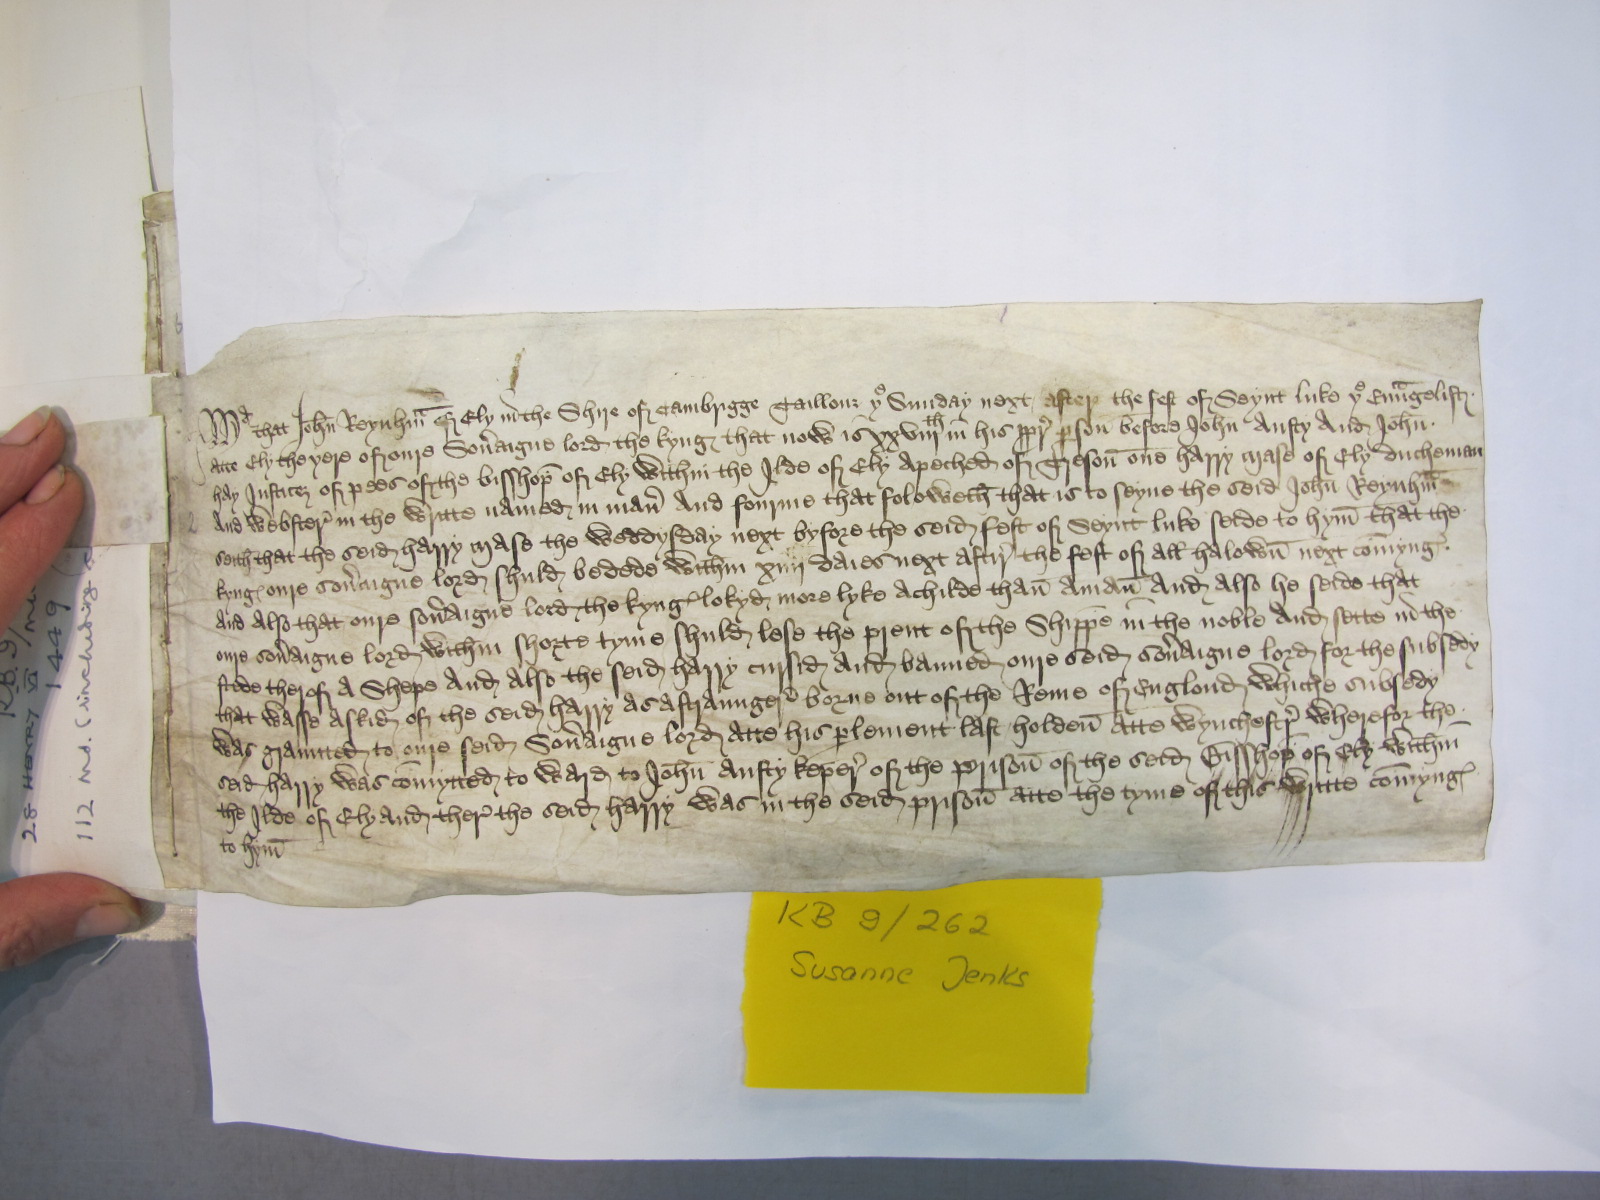 Md that John Reynhm̄ of Ely in the Shire of Cambrigge Taillour ye Sunday next after the fest of Seynt luke ye Eūngelistꝭ
atte Ely the yere of oure Soūaigne lord the kyng that now is xxviijth in his ppr̄ psōn before John Ansty And John
hay Justicez of pees of the bisshop of Ely within the Ilde of Ely Apeched of Tresoun one harry mase of Ely ducheman
And webster in the writte named in man̄ And fourme that foloweth that is to seyne the seid John Reynhm̄
seith that the seid harry mase the weddysday next byfore the seid fest of Seynt luke seide to hym̄ that the
kyng oure soūaigne lord shuld be dede within xiiij daies next aftir the fest of all halown̄ next com̄yng
And Also that oure soūaigne lord the kyng lokyd more lyke A childe than̄ A man̄ And Also he seide that
oure soūaigne lord within shorte tyme shuld lese the prent of the Shippe in the noble And sette in the
stede therof A Shepe And Also the seid harry cursid And banned oure seid soūaigne lord for the subsedy
that wasse askid of the seid harry as A straunger borne out of the Reme of Englond whiche subsedy
was graunted to oure seid Soūaigne lord Atte his plement last holden̄ Atte wynchestr̄ wherefor the
seid harry was com̄ytted to ward to John Ansty keper of the prison̄ of the seid Bisshop of Ely within
the Ilde of Ely and ther the seid harry was in the seid prison̄ Atte the tyme of this writte com̄yng
to hym̄
KB 9/262
Susanne Jenks
28 HENRY VI
1449
112 ms. (including